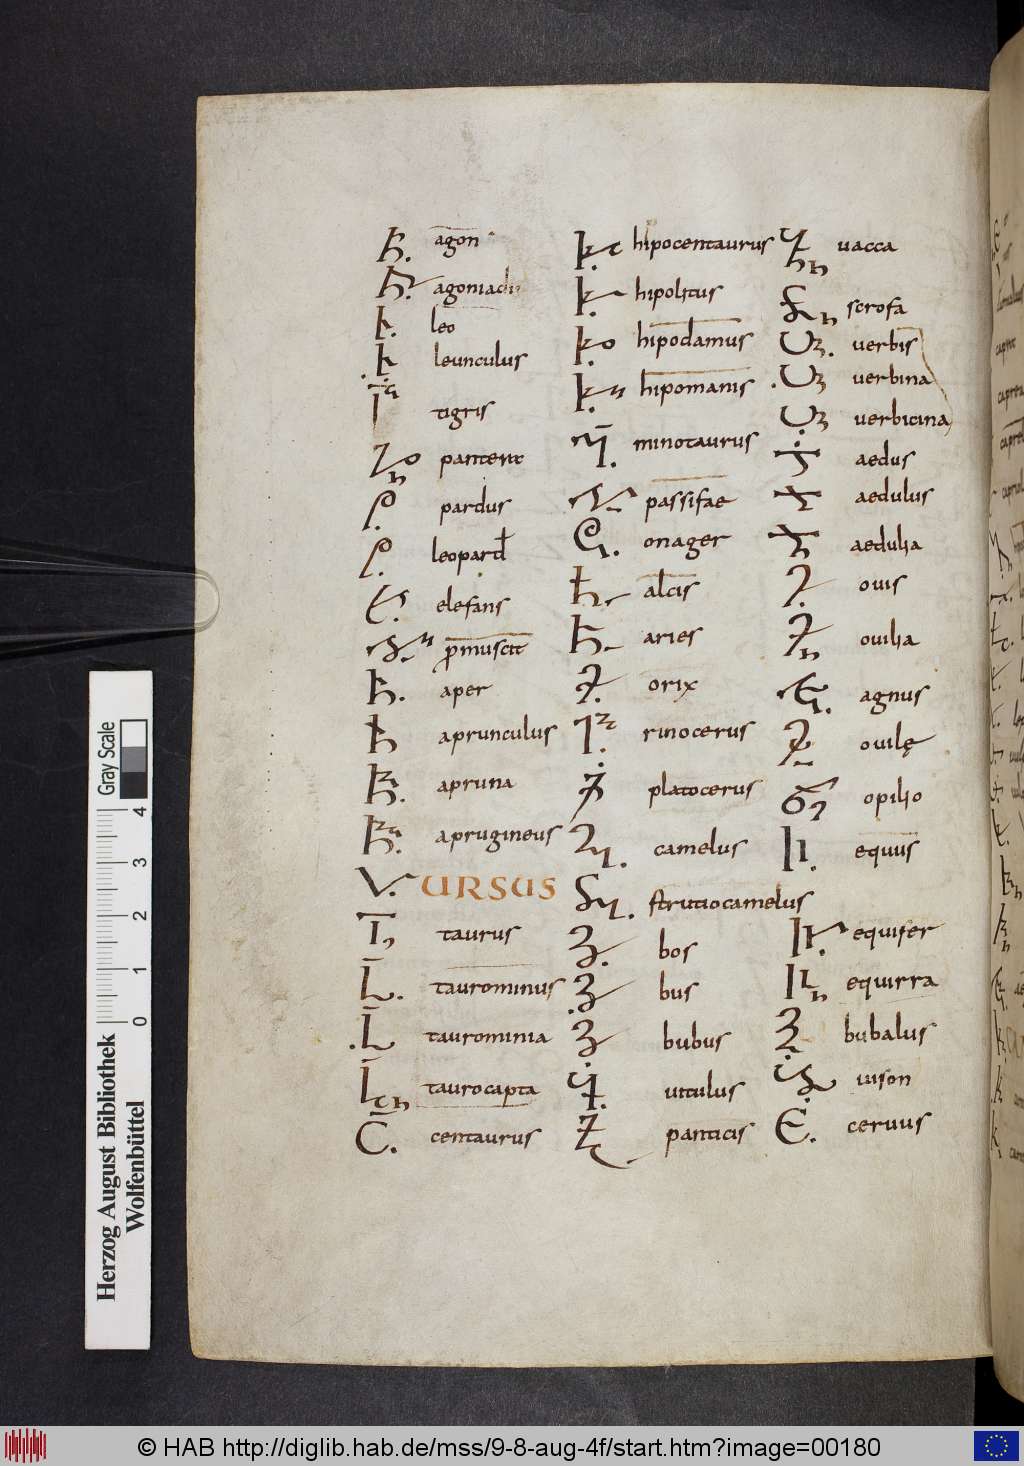 agon
leo
leunculus
tigris
panter
pardus
leopard
elefans
aper
aprunculus
apruna
aprugineus
URSUS
taurus
taurominus
taurominia
taurocapta
centaurus
hipocentaurus
hipolitus
hipodamus
hipomanis
minotaurus
passifae
onager
alcis
aries
orix
rinocerus
platocerus
camelus
strutiocamelus
bos
bus
bubus
uitulus
panticis
uacca
scrofa
uerbis
uerbina
uerbicina
aedus
aedulus
aedulia
ouis
ouilia
agnus
ouilę
opilio
equus
equifer
equirra
bubalus
uison
ceruus
Gray Scale
0 1 2 3 4
Herzog August Bibliothek
Wolfenbüttel
© HAB http://diglib.hab.de/mss/9-8-aug-4f/start.htm?image=00180